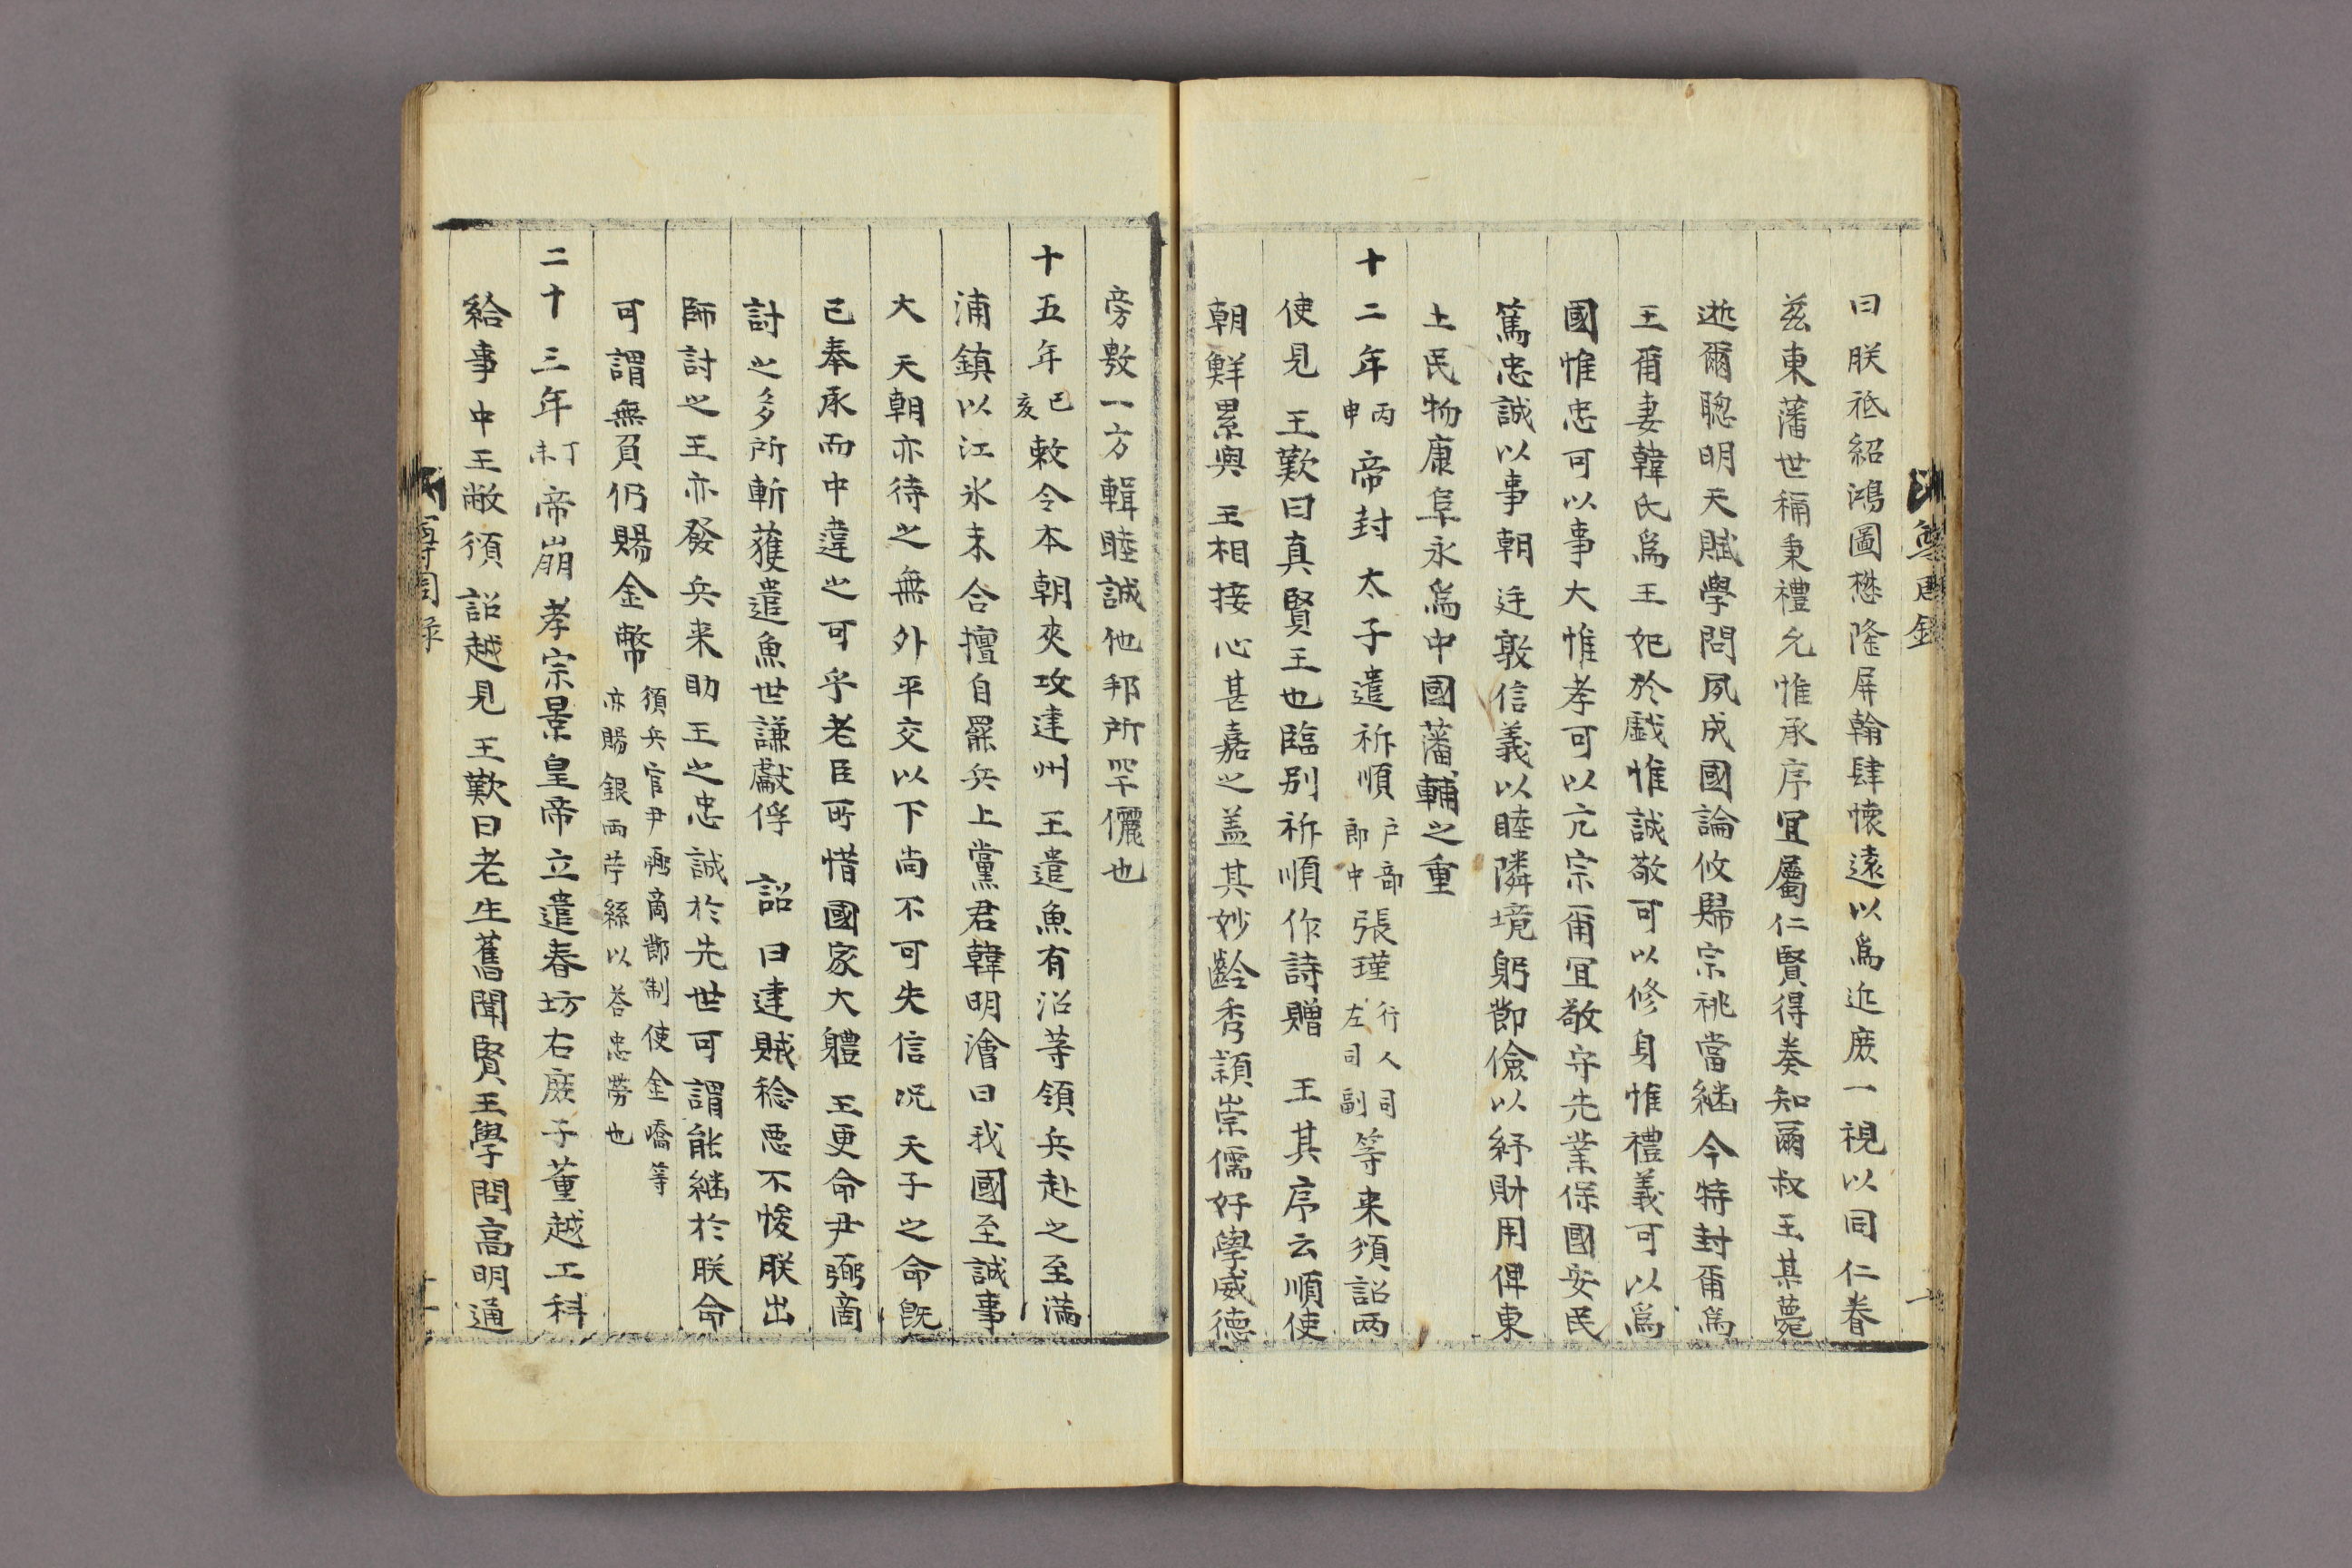 曰朕祗紹鴻圖懋隆屏翰肆懷遠以爲近庶一視以同仁眷
茲東藩世稱秉禮允惟承序宜屬仁賢得奏知爾叔王某薨
逝爾聰明天賦學問夙成國論攸歸宗祧當繼今特封甭爲
王甭妻韓氏爲王妃於戱惟誠敬可以修身惟禮義可以爲
國惟忠可以事大惟孝可以亢宗甭宜敬守先業保國安民
篤忠誠以事朝廷敦信義以睦隣境躬節儉以紓財用俾東
土民物康阜永爲中國藩輔之重
十二年丙申帝封太子遣祈順户部郎中張瑾行人司左司副等来頒詔兩
使見 王歎曰真賢王也臨别祈順作詩贈 王其序云順使
朝鮮累與 王相接心甚嘉之盖其妙齡秀頴崇儒好學威德
旁敷一方輯睦誠他邦所罕儷也
十五年己亥敕令本朝夾攻建州 王遣魚有沼等領兵赴之至滿
浦鎮以江氷未合擅自罷兵上黨君韓明澮曰我國至誠事
大 天朝亦待之無外平交以下尚不可失信况 天子之命旣
已奉承而中違之可乎老臣所惜國家大軆 王更命尹弼商
討之多所斬獲遣魚世謙獻俘 詔曰建賊稔恶不悛朕出
師討之王亦發兵来助王之忠誠於先世可謂能継於朕命
可謂無負仍賜金幣領兵官尹弼商節制使金嶠等亦賜銀兩苧絲以荅忠勞也
二十三年丁未帝崩 孝宗景皇帝立遣春坊右庶子董越工科
給事中王敞頒 詔越見 王歎曰老生舊聞賢王學問高明通
尊周錄